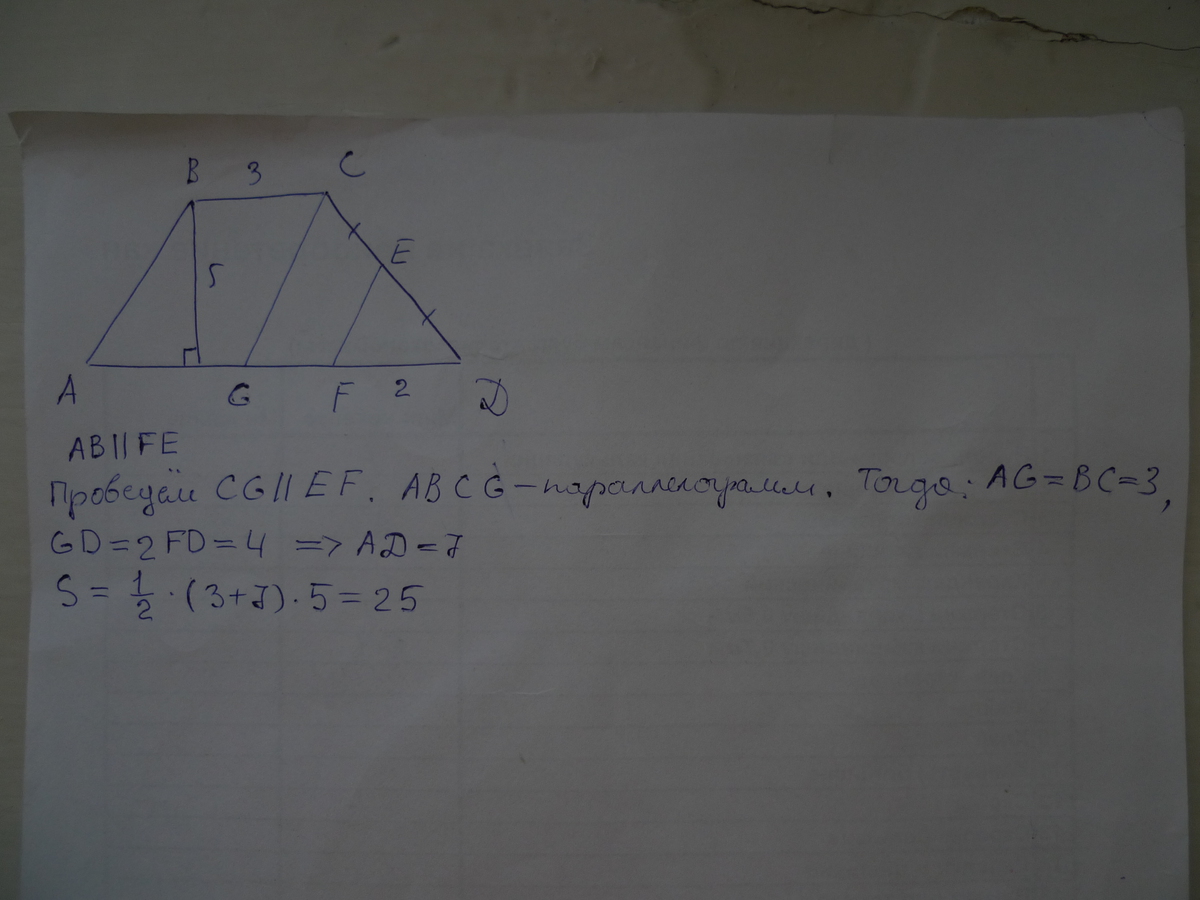 B 3 C
5
E
A G F 2 D
AB || FE
Проведём CG || EF. ABCG – параллелограмм. Тогда: AG = BC = 3,
GD = 2FD = 4 => AD = 7
S = 1/2 · (3+7) · 5 = 25